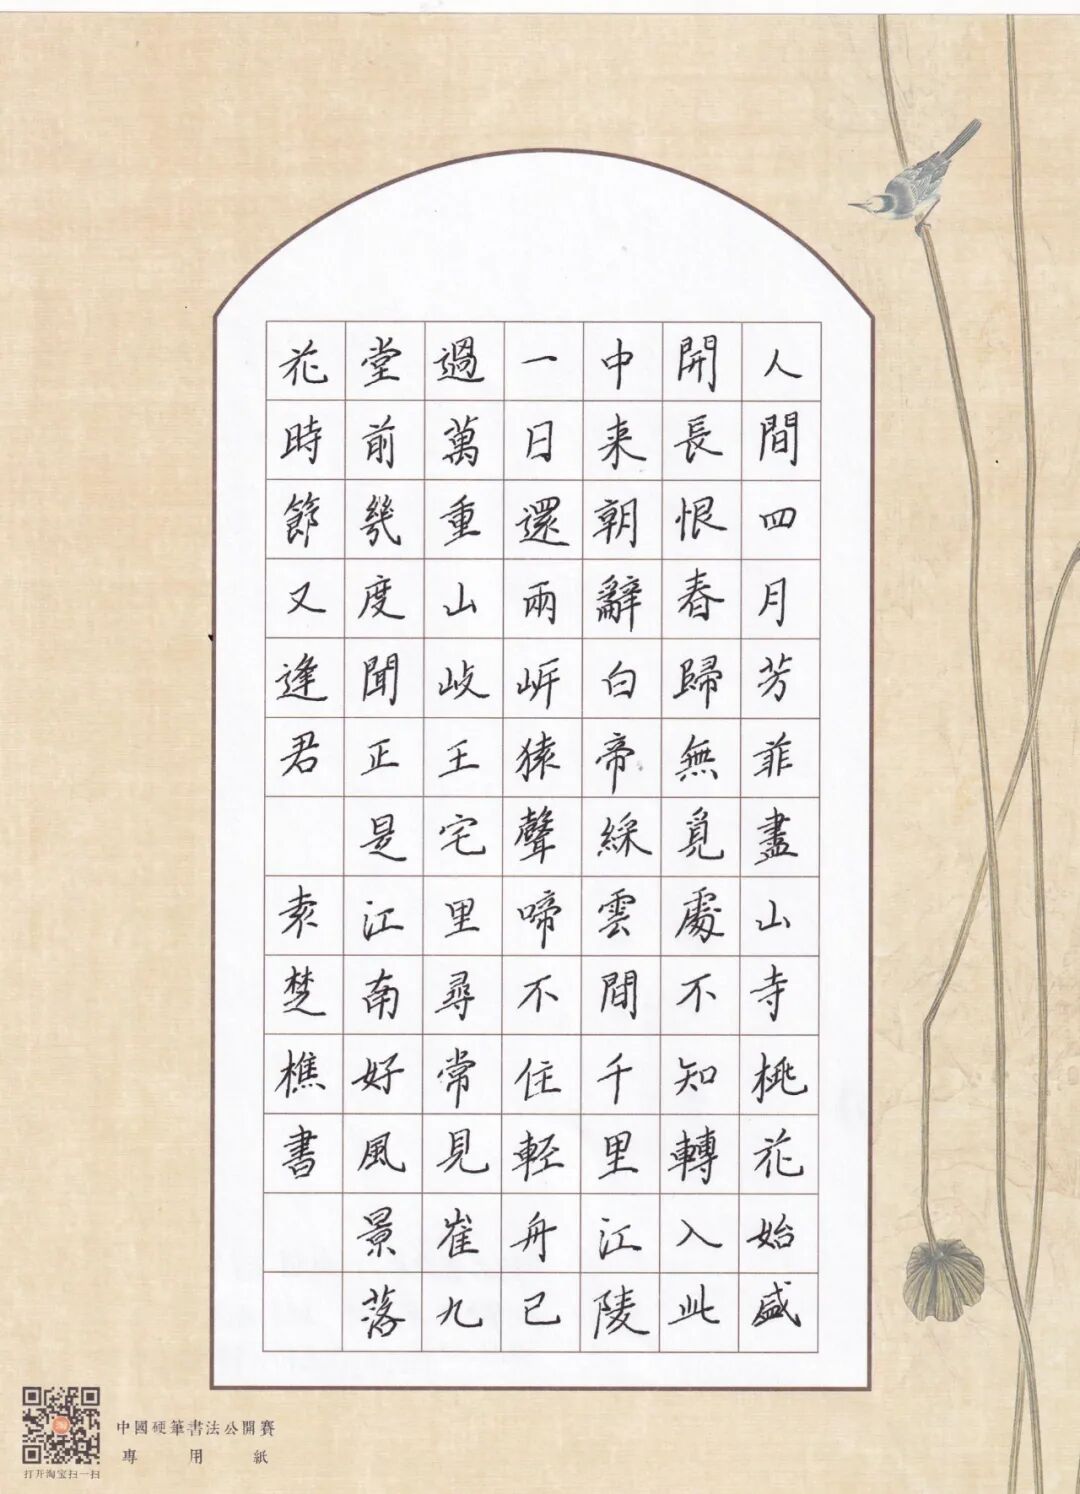 人間四月芳菲盡山寺桃花始盛
開長恨春歸無覓處不知轉入此
中来朝辭白帝綵雲間千里江陵
一日還兩岍猿聲啼不住輕舟已
過萬重山岐王宅里尋常見崔九
堂前幾度聞正是江南好風景落
花時節又逢君 袁楚樵書
中國硬筆書法公開賽
專用紙
打开淘宝扫一扫